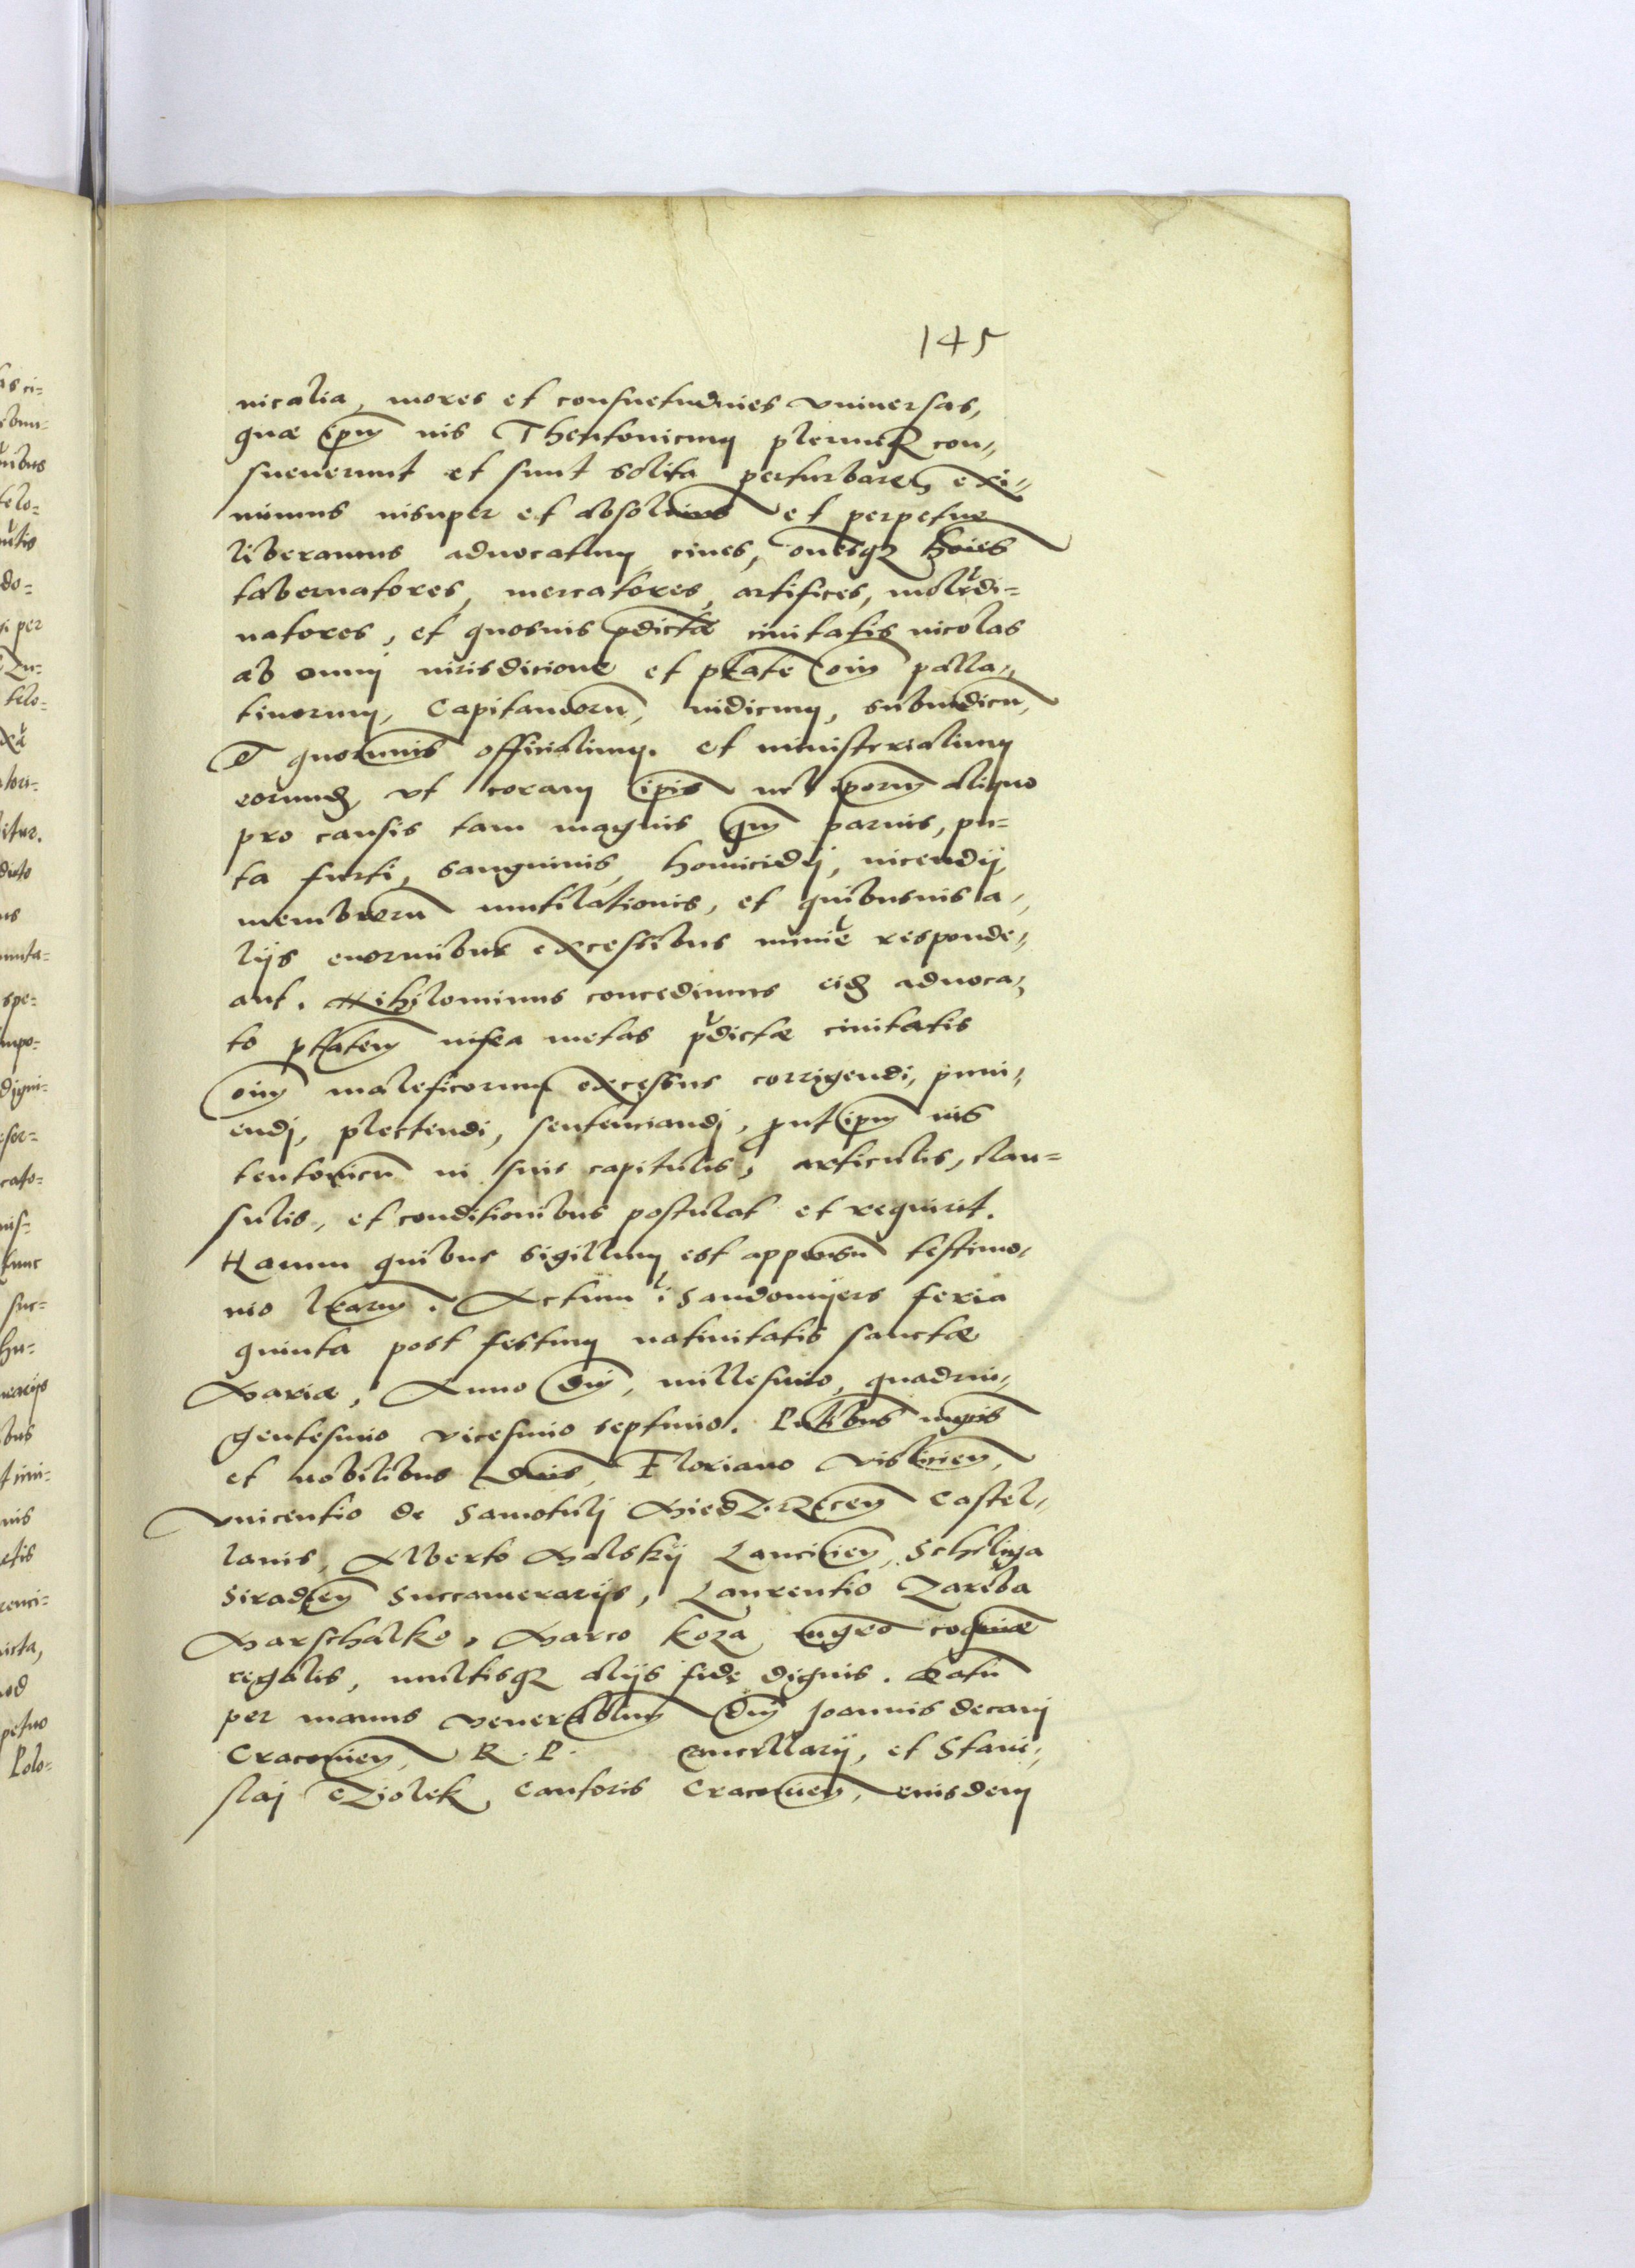 145
nicalia, mores et consuetudines vniuersas,
quæ ipm̄ ius Theutonicum plerumq; con-
sueuerunt et sunt solita perturbare, exi-
mimus insuper et absoluim̄s et perpetue
liberamus aduocatum, ciues, om̄esq; hoīes
tabernatores, mercatores, artifices, molēdi-
natores, et quosuis p̄dictæ ciuitatis incolas
ab omni iurisdicione et p̄tate om̄i palla-
tinorum, Capitaneorū, iudicum, subiudicū,
Et quorumuis officialium, et ministerialium
eorumd., vt coram ip̄is uel ip̄orum aliquo
pro causis tam magnis q̄m paruis, pu-
ta furti, sanguinis, homicidij, incendij,
membrorū mutilationis, et quibusuis a-
lijs enormibus excessibus minīe responde-
ant. Nihilominus concedimus eid. aduoca-
to p̄tatem infra metas p̄dictæ ciuitatis
om̄i maleficorum excessus corrigendi, puni-
endi, plectendi, sentenciandi, put ip̄m ius
teutonicū in suis capitulis, articulis, clau-
sulis, et conditionibus postulat et requirit.
Harum quibus sigillum est appensū testimo-
nio l̄rarum. Actum ī Sandomijers feria
quinta post festum natiuitatis sanctæ
Mariæ, Anno dn̄i, millesimo, quadrin-
gentesimo vicesimo septimo. P̄ntibus mgcīs
et nobilibus dn̄is, Floriano Vislicien̄,
Vincentio de Samotuli Miedzirzecen̄ Castel-
lanis, Alberto Malskij Lancicien̄, Schiliga
Siradien̄ Succamerarijs, Laurentio Zaręba
Marschalko, Marco Koza mgr̄o coquinæ
regalis, multisq; alijs fide dignis. Datū
per manus venerabilium dn̄i Joannis decani
Cracouien̄, R. P. Cancellarij, et Stani-
slai Cziolek Cantoris Cracouien̄, eiusdem